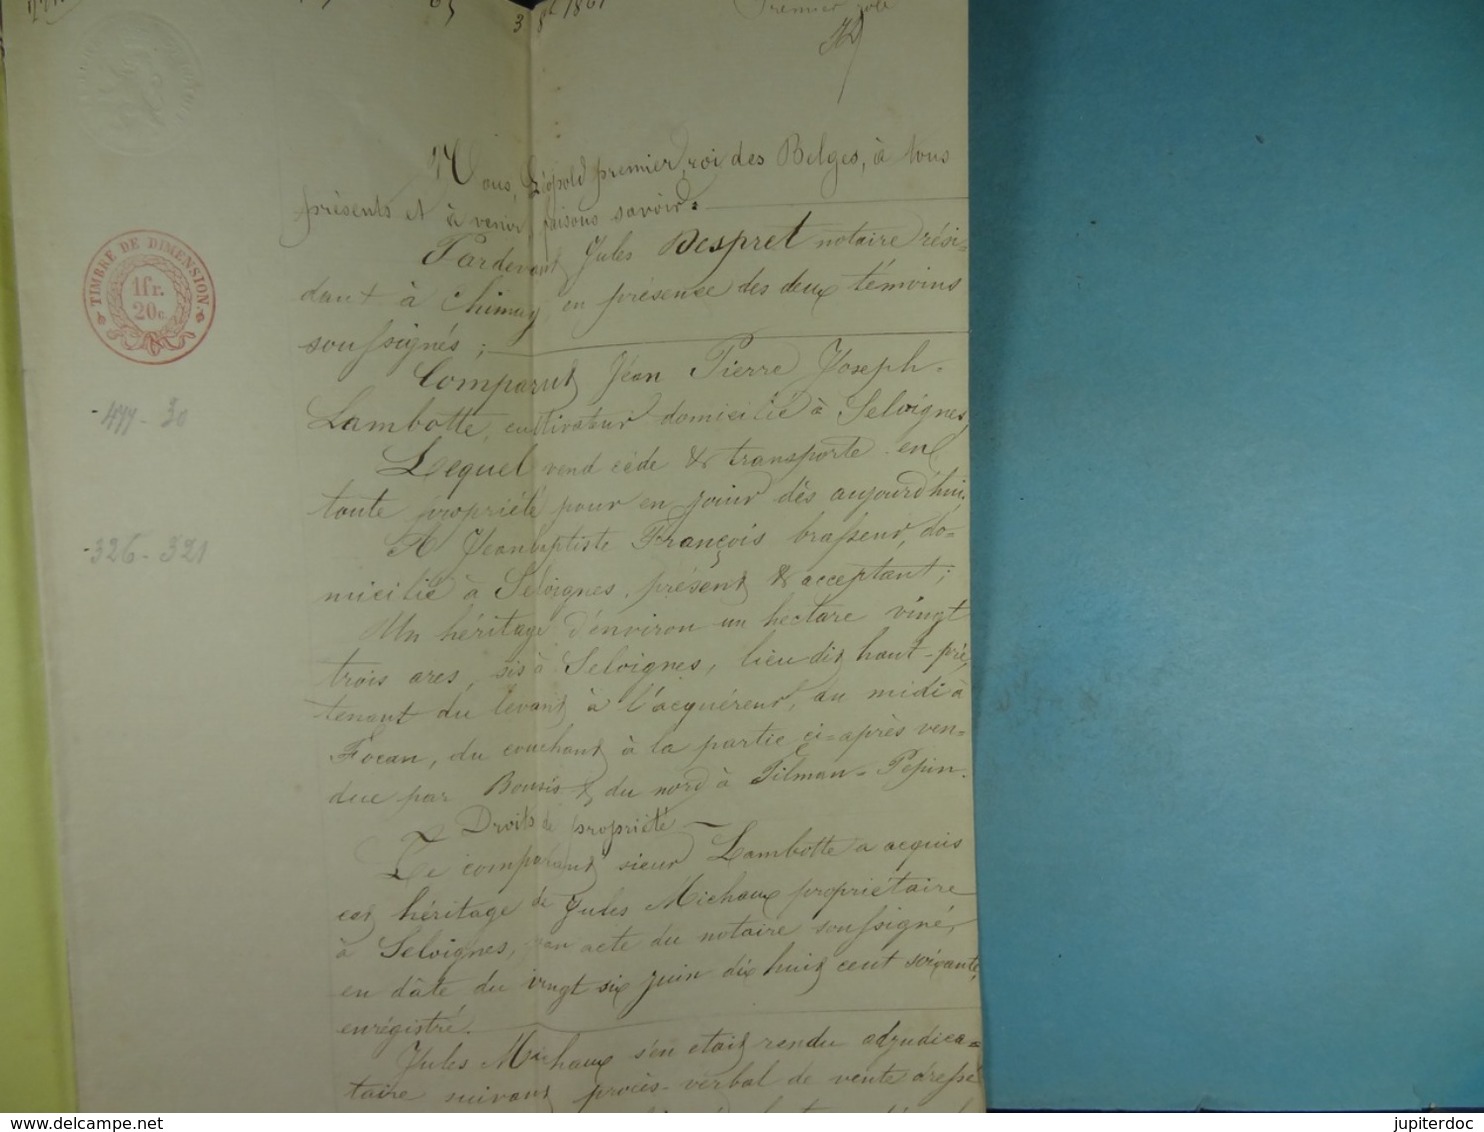 65
3 8bre 1861
Premier rôle
Nous, Léopold premier, roi des Belges, à tous
présents et à venir faisons savoir.
Pardevant Jules Despret notaire rési-
dant à Chimay en présence des deux témoins
soussignés;
Comparut Jean Pierre Joseph
Lambotte, cultivateur domicilié à Seloignes,
Lequel vend cède & transporte en
toute propriété pour en jouir dès aujourd'hui,
A Jeanbaptiste François brasseur, do=
micilié à Seloignes, présent & acceptant;
Un héritage d'environ un hectare vingt
trois ares, sis à Seloignes, lieu dit haut-pré,
tenant du levant à l'acquéreur, au midi à
Focan, du couchant à la partie ci=après ven=
due par Bouris & du nord à Tilman-Pepin.
Droits de propriété
Le comparant sieur Lambotte a acquis
cet héritage de Jules Michaux propriétaire
à Seloignes, par acte du notaire soussigné,
en date du vingt six juin dix huit cent soixante,
enrégistré.
Jules Michaux s'en etait rendu adjudica=
taire suivant procès-verbal de vente dressé
TIMBRE DE DIMENSION
1 fr.
20 c.
-477-30
-326-321
jupiterdoc
www.delcampe.net